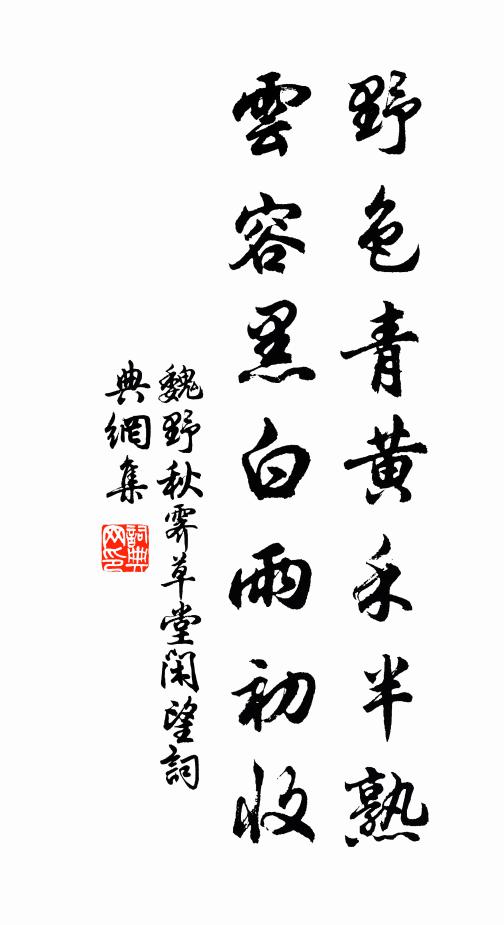 野色青黃禾半熟
雲容黑白雨初收
魏野秋霽草堂閑望詞
典網集
詞典網印